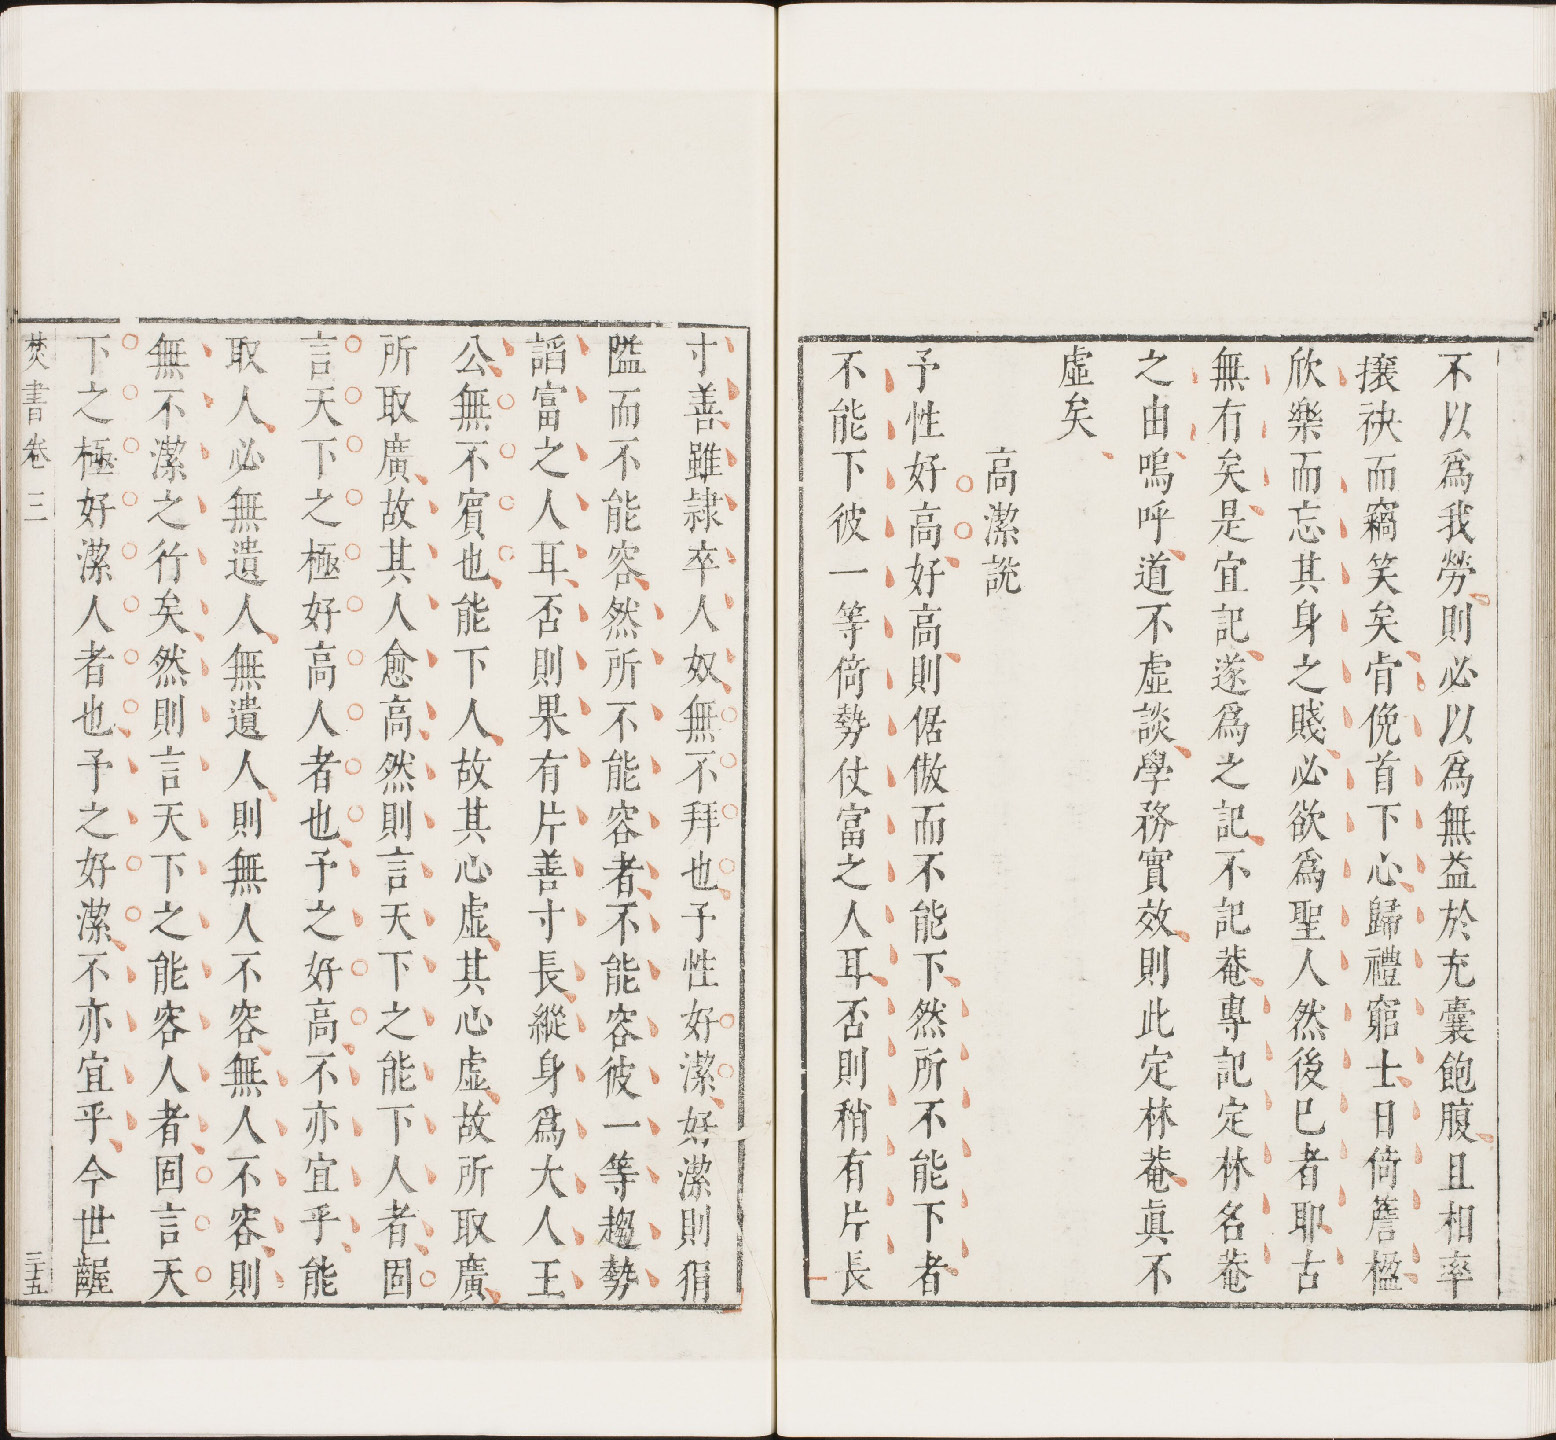 不以爲我勞則必以爲無益於充囊飽腹且相率
攘袂而竊笑矣肯俛首下心歸禮窮士日倚簷楹
欣樂而忘其身之賤必欲爲聖人然後已者耶古
無有矣是宜記遂爲之記不記菴專記定林名菴
之由嗚呼道不虛談學務實效則此定林菴眞不
虛矣
高潔說
予性好高好高則倨傲而不能下然所不能下者
不能下彼一等倚勢仗富之人耳否則稍有片長
寸善雖隷卒人奴無不拜也予性好潔好潔則狷
隘而不能容然所不能容者不能容彼一等趨勢
謟富之人耳否則果有片善寸長縱身爲大人王
公無不賔也能下人故其心虛其心虛故所取廣
所取廣故其人愈高然則言天下之能下人者固
言天下之極好高人者也予之好高不亦宜乎能
取人必無遺人無遺人則無人不容無人不容則
無不潔之行矣然則言天下之能容人者固言天
下之極好潔人者也予之好潔不亦宜乎今世齷
焚書卷三
三十五